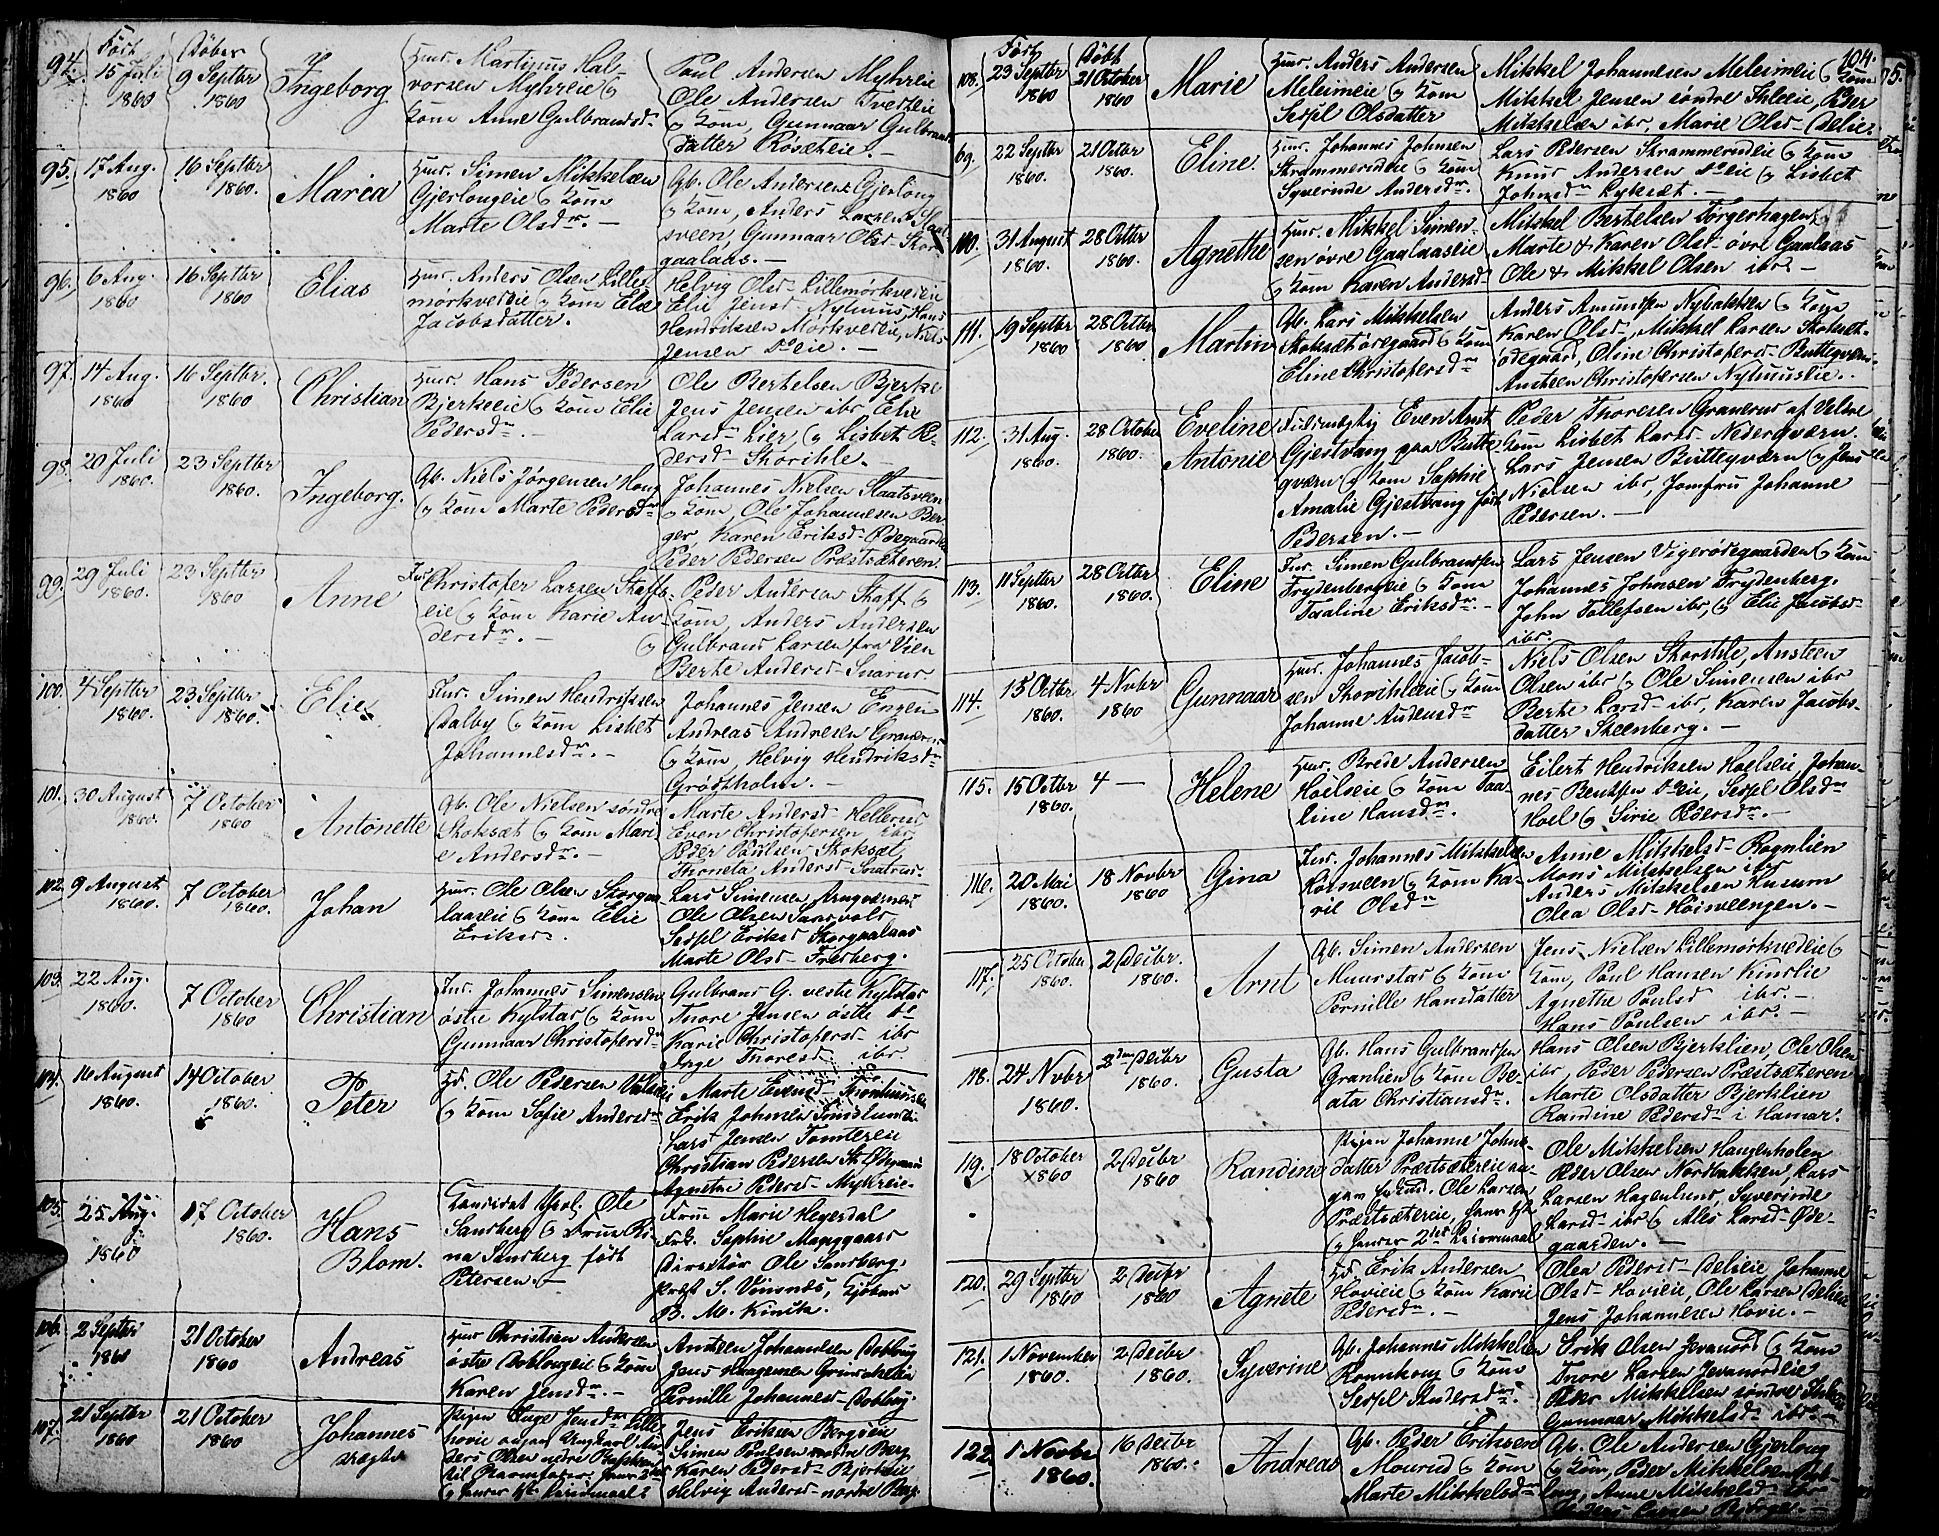 Født Døber
94. 15 Juli 1860 9 Septbr 1860 Ingeborg
Huus. Martinus Halvorsen Myhreie og
Kone Anne Gulbrandsdr
Paul Andersen Myhreie
Ole Andersen Tveteeie
og Kone, Gunnaar Gulbrands
datter Røsæteie. —
95. 17 Aug. 1860 16 Septbr 1860. Maria
Huus. Simen Mikkelsen
Gjerlougeie og Kone
Marte Olsdr. —
Gb. Ole Andersen Gjerloug
og Kone, Anders Larsen
sveen, Gunnaar Olsd. Stor
gaalaas. —
96. 6 Aug. 1860 16 Septbr 1860 Elias
Huus. Anders Olsen Lille
mørkvedeie og Kone Elie
Jacobsdatter.
Helvig Olsd. Lillemørkvedeie
Elie Jensd. Nyhuus, Hans
Hendriksen Mørkvedeie, Niels
Jensen do eie. —
97. 14 Aug. 1860 16 Septbr. 1860 Christian
Huus. Hans Pedersen
Bjerkeeie og Kone Elie
Pedersdr. —
Ole Berthelsen Bjerke
Jens Jensen ibr, Elie
Larsdr Lier, og Lisbet Pe-
dersd. Skorihle.
98. 20 Juli 1860. 23 Septbr 1860. Ingeborg.
Gb. Niels Jørgensen Houg
og Kone Marte Pedersdr
Johannes Nielsen Slaatsveen
og Kone, Ole Johannesen Ber-
ger, Karen Eriksd. Ødegaarden
Peder Pedersen Præstsæteren.
99. 29 Juli 1860. 23 Septbr 1860 Anne
Huus. Christofer Larsen Skaffs
eie og Kone Karie An-
dersdr. —
Peder Andersen Skaff og
Kone, Anders Andersen
og Gulbrand Larsen fra Vien
Berte Andersd. Svarud
100. 4 Septbr 1860. 23 Septbr 1860. Elie
Huus. Simen Hendriksen
Dalby og Kone Lisbet
Johannesdr. —
Johannes Jensen Engen
Andreas Andresen Granerud
og Kone, Helvig Hendriksdr
Grødtholm. —
101. 30 August 1860. 7 October 1860 Antonette
Gb. Ole Nielsen søndre
Stoksæt og Kone Mari
e Andersdr. —
Marte Andersd. Hellerud
Even Christofersen ibr
Peder Poulsen Stoksæt
Thoneta Andersd. Svarud.
102. 9 August 1860. 7 October 1860. Johan
Huus. Ole Olsen Storgaa
laaseie og Kone Elie
Eriksdr.
Lars Simensen
Ole Olsen
Sespl Eriksd Storgaalaas
Marte Olsd. Fredberg.
103. 22 Aug. 1860. 7 October 1860 Christian
Huus. Johannes Simensen
østre Kylstad og Kone
Gunnaar Christofersdr
Gulbrand G. vestre Kylstad
Thore Jensen østre do
Karie Christofersd. ibr
Inge Thoresd. ibr.
104. 16 August 1860. 14 October 1860. Peter
Hd. Ole Pedersen
og Kone Sofie Andersdr
Marte Evensd.
Erik Johnsen
Lars Jensen Tomtereie
Christian Pedersen
Agnethe Pedersd. Myhreie.
105. 25 Aug. 1860 17 October 1860. Hans Blom.
Candidat theol. Ole
Sandberg og Frue Ki-
na Sandberg født
Petersen. —
Frue Marie Hegerdal
Frk. Sophie Mangaard
Directør Ole Sandberg,
Præst S. Vinsnes,
B. M. Kinck.
106. 2 Septbr 1860 21 October 1860 Andreas
Huus Christian Andersen
østre Doblougeie og Kone
Karen Jensdr. —
Anders Johannesen Dobloug
Jens Haagensen
Pernille Johannesd. Dobloug.
107. 21 Septbr 1860 21 October 1860 Johannes uægte
Pigen Inge Jensdr Lille
hovie angav Ungkarl An-
ders Olsen nedre
til Barnefader,
Jens Eriksen Bergseie
Simen Poulsen nordre Berg
Karen Pedersd. Bjerkeie
Helvig Andersd. nordre Berg.
104.
Født Døbt
108. 23 Septbr 1860 21 October 1860 Marie
Huus. Anders Andersen
Meleimeie og Kone
Sespl Olsdatter
Mikkel Johannesen Meleimeie og Kone
Mikkel Jensen søndre Ihleeie, Peder
Mikkelsen ibr, Marie Olsd.
69. 22 Septbr 1860. 21 Octbr 1860. Eline.
Huus. Johannes Johnsen
Strammerudeie og Kone
Syverine Andersdr.
Lars Pedersen Strammerudeie og Kone
Knud Andersen do eie og Lisbet
Johnsdr Kyksæt. —
100. 31 August 1860. 28 Octbr 1860. Agnethe
Huus. Mikkel Simen-
sen øvre Gaalaaseie
og Kone Karen Andersd.
Mikkel Bertelsen Torgerhagen
Marte & Karen Olsd. øvre Gaalaas
Ole & Mikkel Olsen ibr —
111. 19 Septbr 1860 28 Octbr 1860 Martin
Gb. Lars Mikkelsen
Stoksæt ødegaard og Kone
Eline Christofersdr
Anders Amundsen Nybakken og Kone
Karen Olsd., Mikkel Larsen Stoksæt-
ødegaard, Oline Christofersd. Butteqværn.
Ansteen Christofersen Nyhuuseie.
112. 31 Aug. 1860. 28 October 1860. Eveline Antonie
Fuldmægtig Even Arnt
Gjestvang paa Butte
qværn og Kone Sophie
Amalie Gjestvang født
Pedersen. —
Peder Thoresen Granerud af Veldre
Kone Lisbet Larsd. Nederqværn.
Lars Jensen Butteqværn og Jens
Nielsen ibr, Jomfru Johanne
Pedersen. —
113. 11 Septbr 1860. 28 Octbr 1860. Eline
Huus. Simen Gulbrandsen
Frydenbergeie og Kone
Taaline Eriksdr. —
Lars Jensen Vigerødegaarden og Kone
Johannes Johnsen Frydenberg.
John Tollefsen ibr, og Elie Jacobsd.
ibr.
114. 15 Octbr 1860. 4 Novbr 1860 Gunnaar
Huus. Johannes Jacob-
sen Skorihleeie og Kone
Johanne Andersdr
Niels Olsen Skorihle, Ansteen
Olsen ibr og Ole Simensen ibr
Berte Larsd. ibr, Karen Jacobs-
datter Steenberg. —
115. 15 Octbr 1860. 4 — Helene
Huus. Brede Andersen
Hoelseie og Kone Taa-
line Hansdr.
Eilert Hendriksen Hoelseie Johan-
nes Bentsen do eie, Sespl Olsdr
Hoel og Sirie Pedersdr. —
116. 20 Mai 1860. 18 Novbr 1860 Gina
Huus. Johannes Mikkelsen
Koisveen og Kone Ka-
ril Olsdr
Anne Mikkelsd. Rognlien
Mons Mikkelsen ibr
Anders Mikkelsen Husum
Olea Olsd. Hoisveengen. —
117. 25 October 1860. 2 Decbr. 1860. Arnt
Gb. Simen Andersen
Muurstad og Kone
Pernille Hansdatter
Jens Nielsen Lillemørkvedeie og
Kone, Poul Hansen Kinslie
Agnethe Poulsd ibr. —
Hans Poulsen ibr. —
118. 24 Novbr 1860. 2den Decbr 1860. Gusta
Gb. Hans Gulbrandsen
Granlien og Kone Be-
ata Christiansdr.
Hans Olsen Bjerklien, Ole Olsen
ibr, Peder Pedersen Præstsæteren
Marte Olsdatter Bjerklien
Randine Pedersd. i Hamar.
119. 18 October 1860 2 Decbr 1860 Randine
Pigen Johanne Johns-
datter Præstsætereie an-
gav Ole Larsen
Præstsætereie,
og hendes 2det Leiermaal
Ole Mikkelsen Haugenholen
Peder Olsen Nordbakken, Lars
Larsen Hagenlund, Syverinde
Larsd. ibr og Ales Larsd. Øde-
gaarden. —
120. 29 Septbr 1860 2 Decbr 1860 Agnete
Hd. Erik Andersen
Hovieie og Kone Karie
Pedersdr. —
Olea Pedersd. Delieie Johanne
Olsd. Hovieie, Ole Larsen Delieie
Jens Johannesen Hovie. —
121. 1 November 1860. 2 Decbr 1860. Syverine
Gb. Johannes Mikkelsen
Romhoug og Kone
Sespl Andersdr.
Erik Olsen Jevanord og Kone
Thore Larsen Jevanordeie
Peder Mikkelsen søndre
Gunnaar Mikkelsd. ibr. —
122 1 Novbr 1860. 16 Decbr 1860. Andreas
Gb. Peder Eriksen
Mourud og Kone
Marte Mikkelsdr
Gb. Ole Andersen Gjerloug
og Kone, Peder Mikkelsen
Anne Mikkelsd. ibr